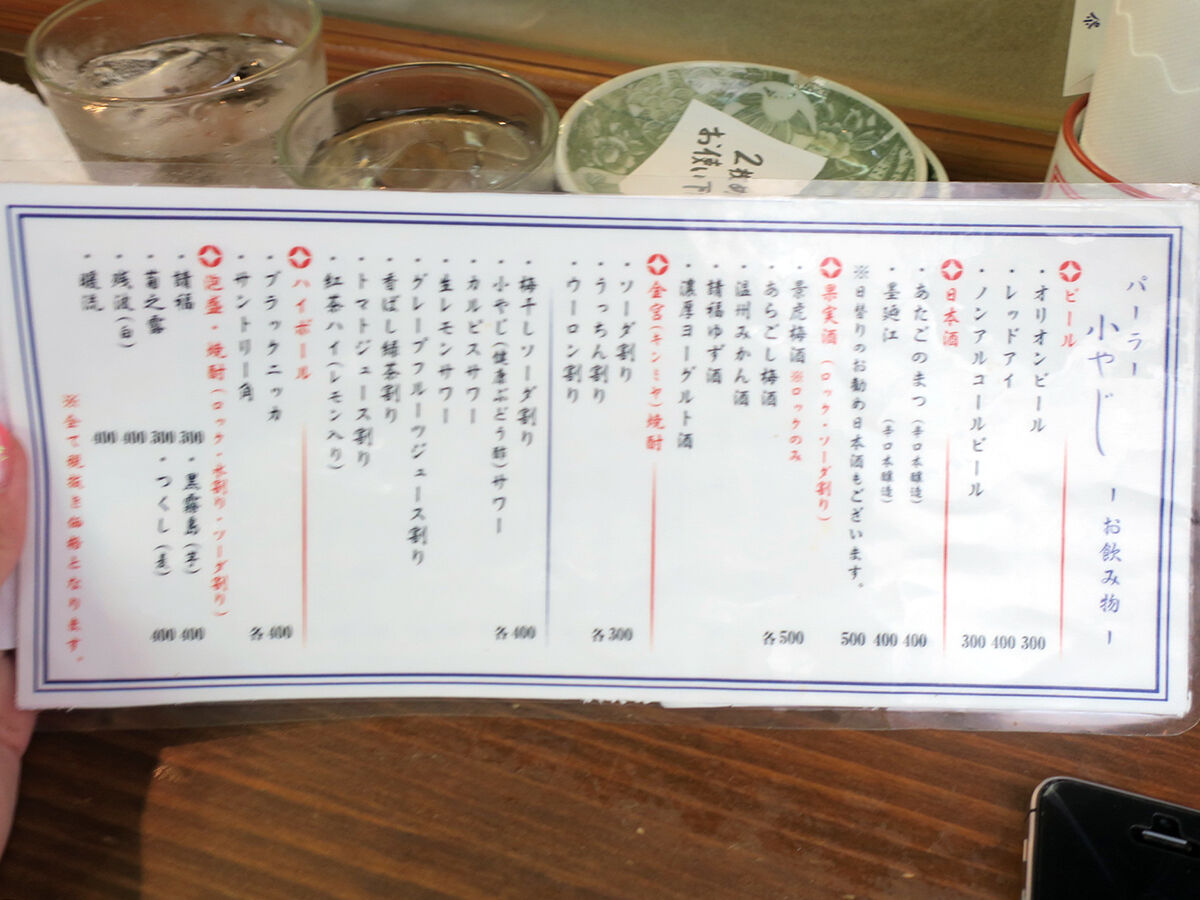 パーラー
小やじ
ーお飲み物ー
ビール
・オリオンビール 300
・レッドアイ 400
・ノンアルコールビール 300
日本酒
・あたごのまつ（辛口本醸造） 400
・墨廼江（辛口本醸造） 400
※日替りのお勧め日本酒もございます。 500
果実酒（ロック・ソーダ割り）
・景虎梅酒 ※ロックのみ
・あらごし梅酒
・温州みかん酒
・請福ゆず酒
・濃厚ヨーグルト酒
各500
金宮（キンミヤ）焼酎
・ソーダ割り
・うっちん割り
・ウーロン割り
各300
・梅干しソーダ割り
・小やじ（健康ぶどう酢）サワー
・カルピスサワー
・生レモンサワー
・グレープフルーツジュース割り
・香ばし緑茶割り
・トマトジュース割り
・紅茶ハイ（レモン入り）
各400
ハイボール
・ブラックニッカ
・サントリー角
各400
泡盛・焼酎（ロック・水割り・ソーダ割り）
・請福 300
・菊之露 300
・残波（白） 400
・暖流 400
・黒霧島（芋） 400
・つくし（麦） 400
※全て税抜き価格となります。
2枚め
お使い下